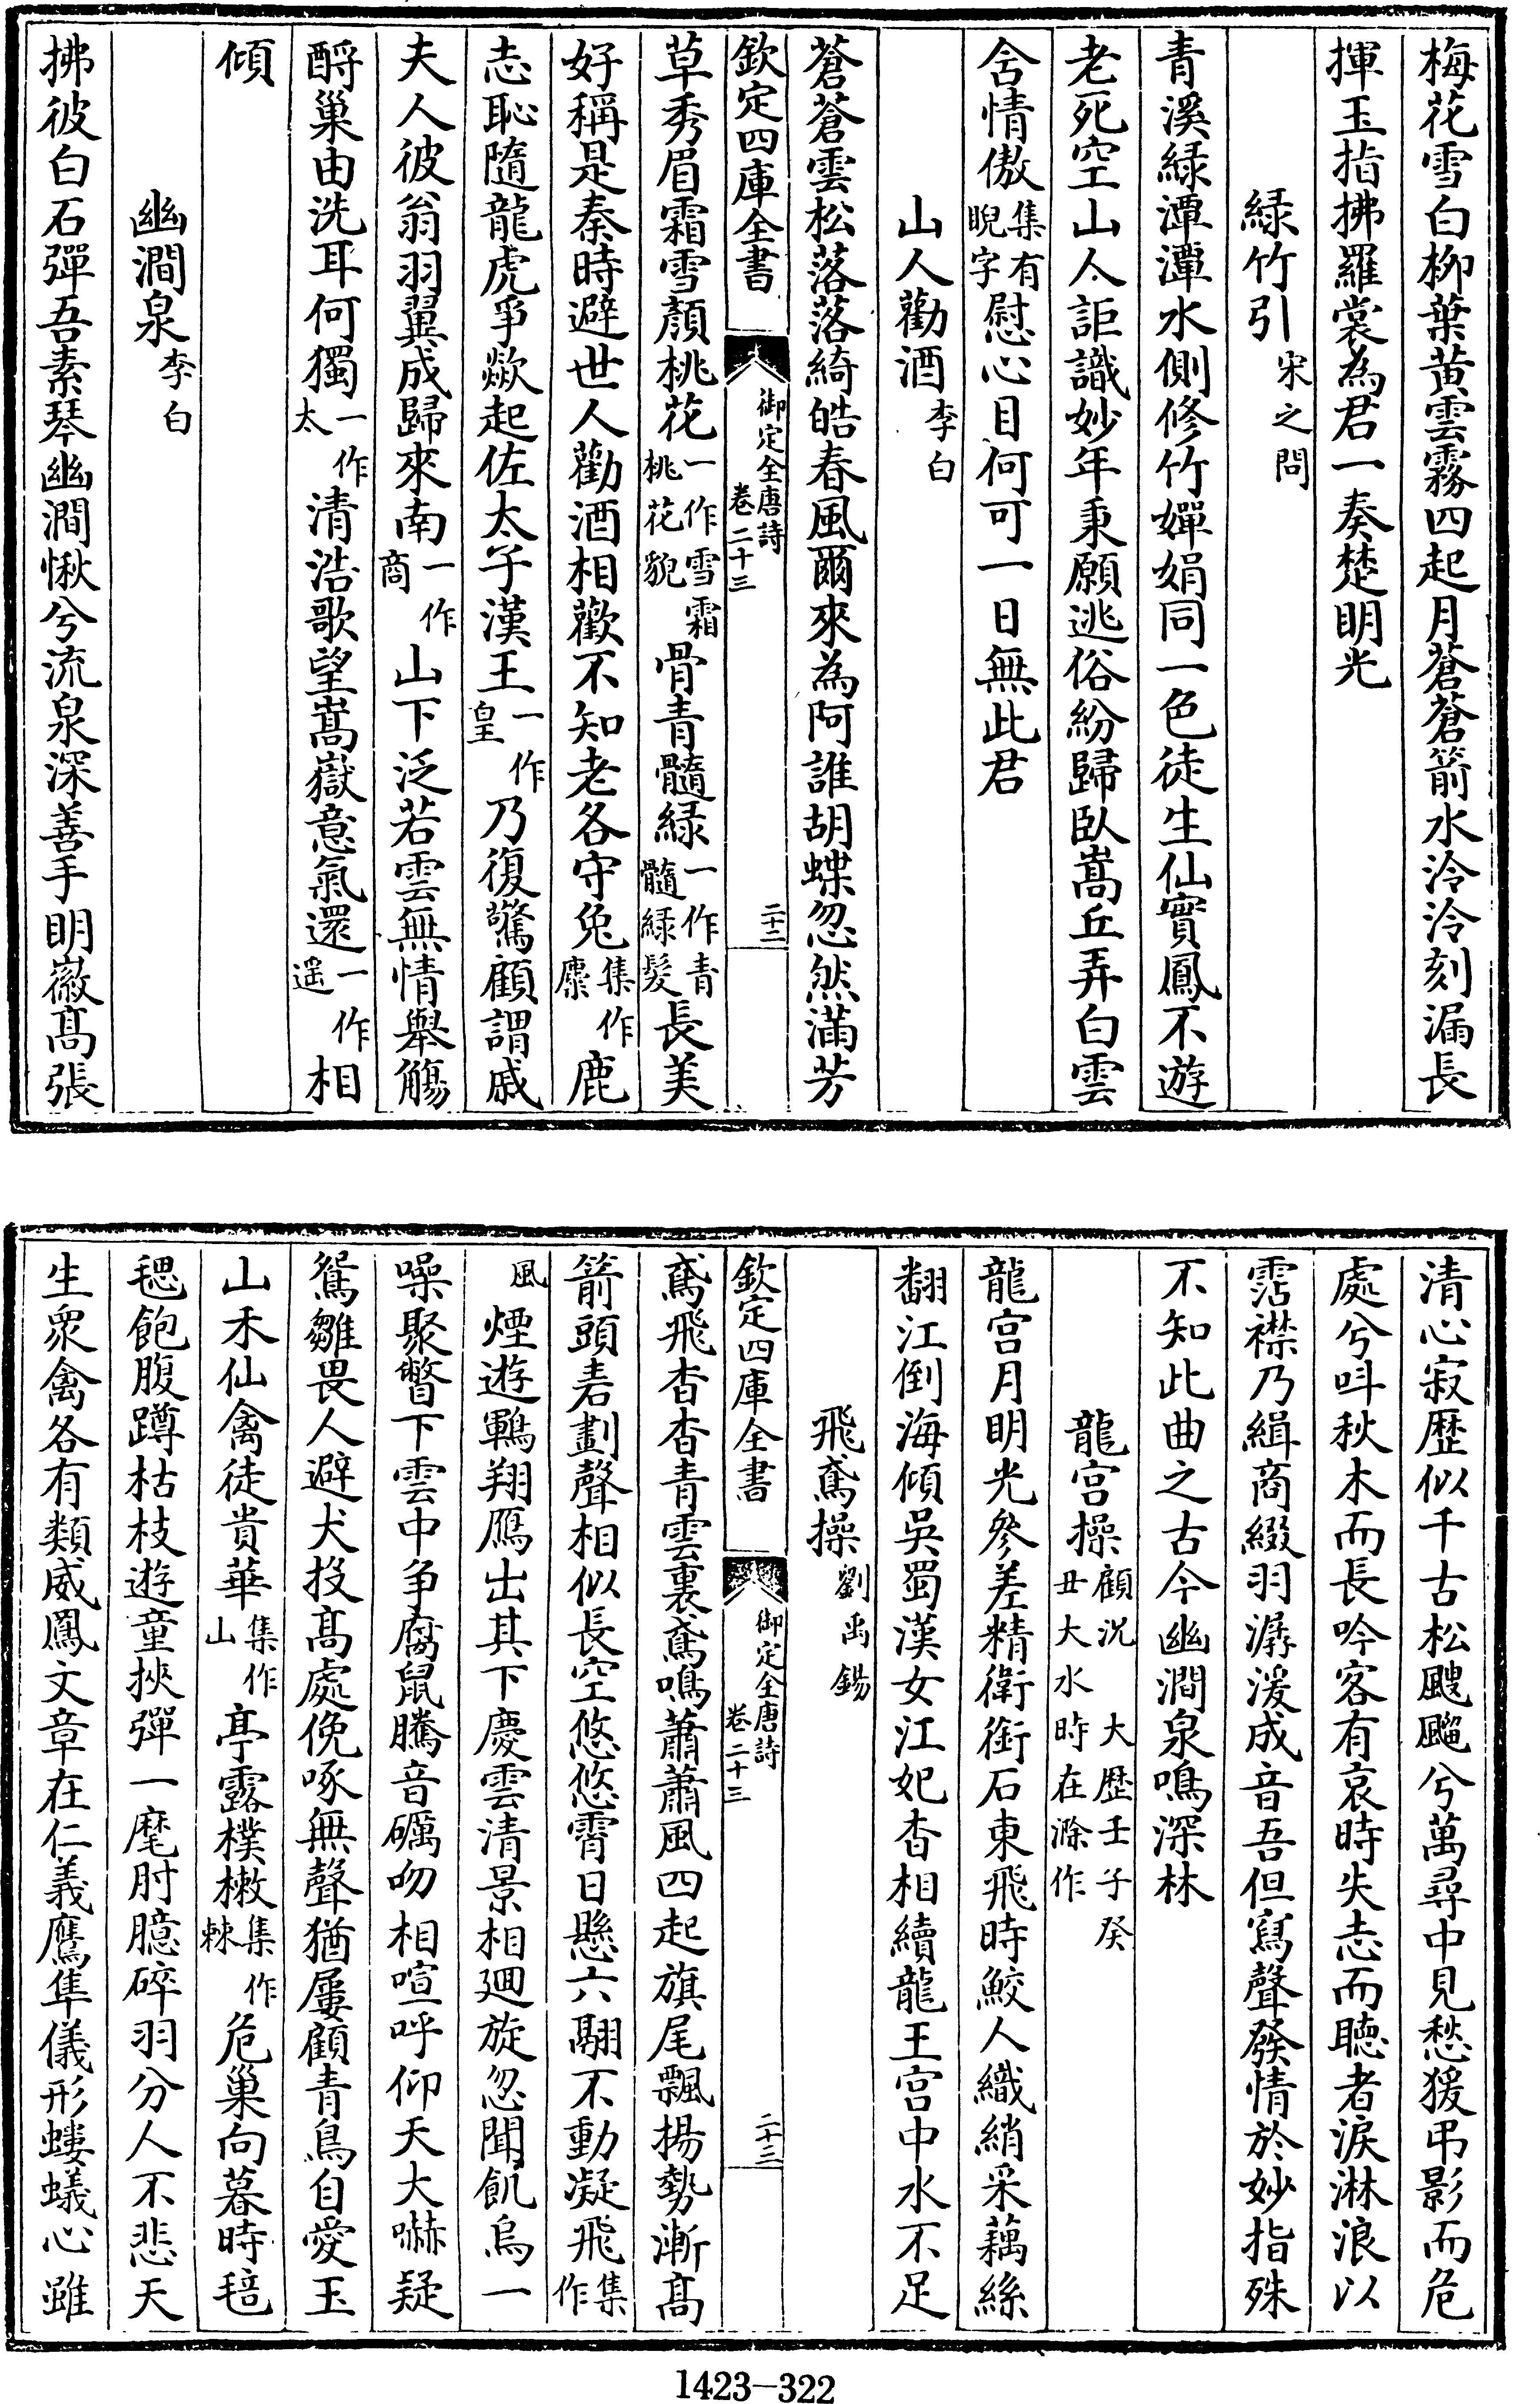 梅花雪白柳葉黃雲霧四起月蒼蒼箭水泠泠刻漏長
揮玉指拂羅裳為君一奏楚明光
緑竹引宋之問
青溪緑潭潭水側修竹嬋娟同一色徒生仙實鳳不遊
老死空山人詎識妙年秉願逃俗紛歸臥嵩丘弄白雲
含情傲集有睨字慰心目何可一日無此君
山人勸酒李白
蒼蒼雲松落落綺皓春風爾來為阿誰胡蝶忽然滿芳
欽定四庫全書 御定全唐詩卷二十三 二十二
草秀眉霜雪顏桃花一作雪霜桃花貌骨青髓緑一作青髓緑髮長美
好稱是秦時避世人勸酒相歡不知老各守兔集作麋鹿
志恥隨龍虎爭歘起佐太子漢王一作皇乃復驚顧謂戚
夫人彼翁羽翼成歸來南一作商山下泛若雲無情舉觴
酹巢由洗耳何獨一作太清浩歌望嵩嶽意氣還一作遥相
傾
幽澗泉李白
拂彼白石彈吾素琴幽澗愀兮流泉深善手明徽髙張
清心寂歴似千古松颼飀兮萬尋中見愁猨弔影而危
處兮呌秋木而長吟客有哀時失志而聴者淚淋浪以
霑襟乃緝商綴羽潺湲成音吾但寫聲發情於妙指殊
不知此曲之古今幽澗泉鳴深林
龍宫操顧况 大歴壬子癸丑大水時在滁作
龍宫月明光參差精衛銜石東飛時鮫人織綃采藕絲
翻江倒海傾吳蜀漢女江妃杳相續龍王宫中水不足
飛鳶操劉禹錫
欽定四庫全書 御定全唐詩卷二十三 二十三
鳶飛杳杳青雲裏鳶鳴蕭蕭風四起旗尾飄揚勢漸髙
箭頭砉劃聲相似長空悠悠霄日懸六翮不動凝飛集作
風煙遊鵾翔鴈出其下慶雲清景相廻旋忽聞飢烏一
噪聚瞥下雲中争腐鼠騰音礪吻相喧呼仰天大嚇疑
鴛雛畏人避犬投髙處俛啄無聲猶屢顧青鳥自愛玉
山禾仙禽徒貴華集作山亭露樸樕集作棘危巢向暮時毰
毸飽腹蹲枯枝遊童挾彈一麾肘臆碎羽分人不悲天
生衆禽各有類威鳳文章在仁義鷹隼儀形螻蟻心雖
1423-322